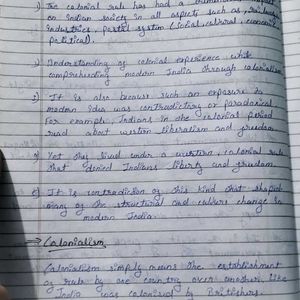 1) The colonial rule has had a
on Indian society in all aspects such as, Railways
industries, Postal system (social, cultural, economic
political).
2) Understanding of colonial experience while
comprehending modern India through colonialism
3) It is also because such an exposure to
modern idea was contradictory or paradoxical
for example: Indians in the colonial period
read about western liberalism and freedom
4) Yet they lived under a western, colonial rule
that denied Indians liberty and freedom.
5) It is contradiction of this kind that shaped
many of the structural and culture change in
modern India.
→ Colonialism
Colonialism simply means the establishment
of rule by one country over another like
India was colonised by Britishers